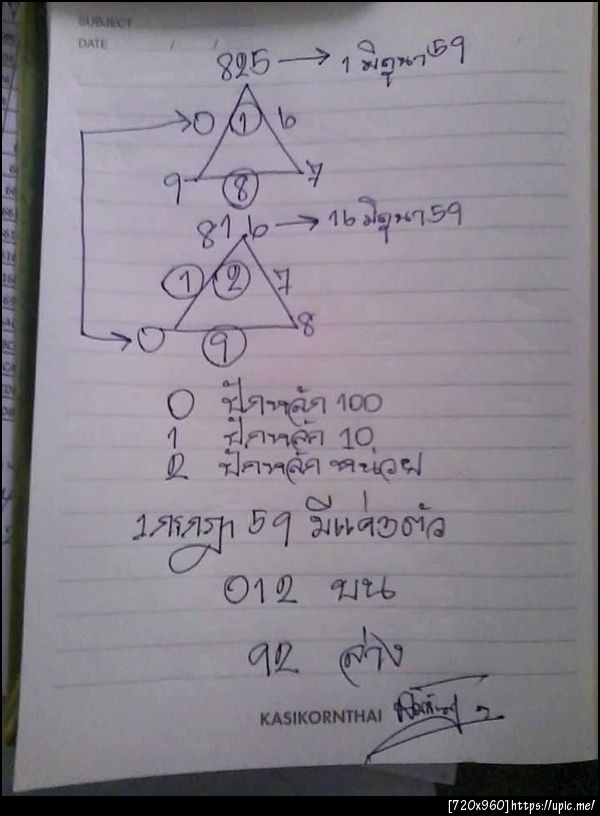 SUBJECT
DATE / /
825 → 1 มิถุนา 59
0 1 6
9 8 7
816 → 16 มิถุนา 59
1 2 7
0 9 8
0 ปักหลัก 100
1 ปักหลัก 10
2 ปักหลัก หน่วย
1 กรกฎา 59 มีแค่ 3 ตัว
012 บน
92 ล่าง
KASIKORNTHAI
[720x960]https://upic.me/